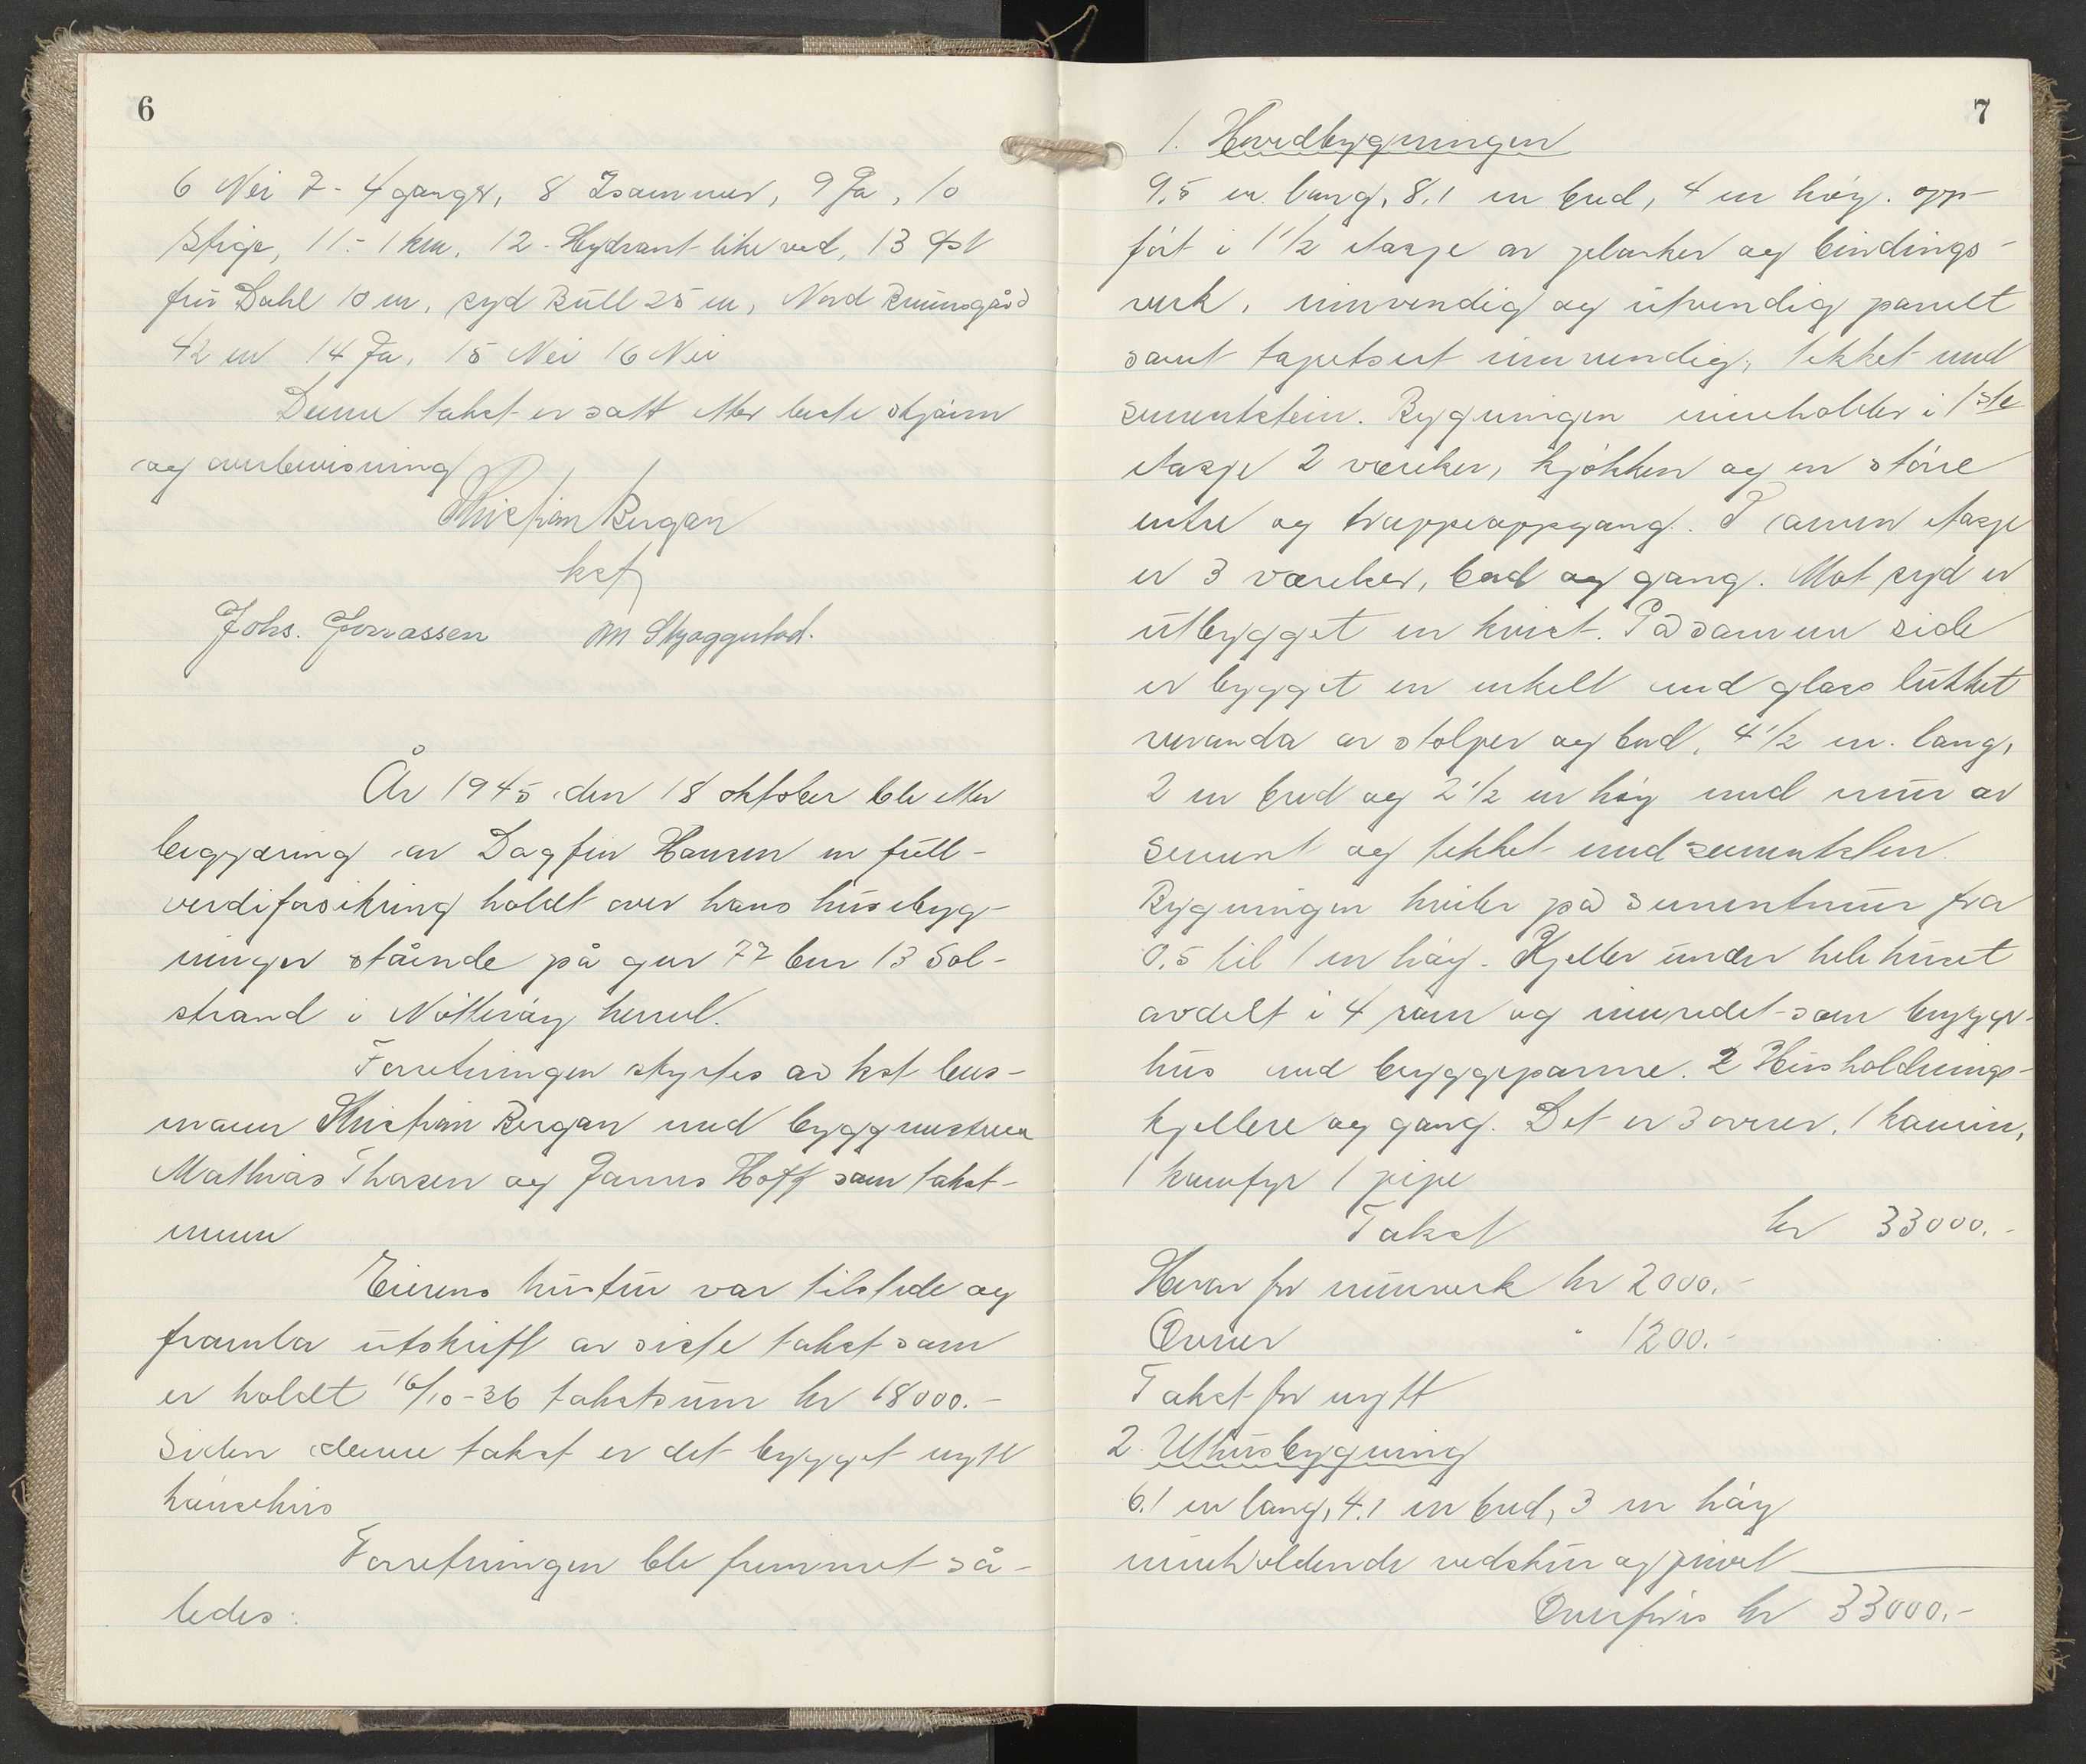 6
6 Nei 7 - 4 ganger, 8 Isammen, 9 Ja, 10
Stige, 11 - 1 km, 12 - Hydrant like ved, 13 Øst
fru Dahl 10 m, syd Bull 25 m, Nord Bruunsgård
42 m 14 Ja, 15 Nei 16 Nei
Denne takst er satt etter beste skjønn
og overbevisning
Kristian Bergan
kst
Johs. Jonassen M Skjaggestad.
År 1945 den 18 oktober ble etter
begjæring av Dagfin Hansen en full-
verdiforsikring holdt over hans husebyg-
ninger stående på gnr 77 bnr 13 Sol-
strand i Nøtterøy herred.
Forretningen styrtes av kst lens-
mann Kristian Bergan med byggmestrea
Mathias Thorsen og Janus Hoff som takst-
menn
Eierens hustru var tilstede og
framla utskrift av siste takst som
er holdt 16/10-36 takstsum kr 18000.-
Siden denne takst er det bygget nytt
hønsehus
Forretningen ble fremmet så-
ledes:
7
1. Hovedbygningen
9,5 m lang, 8,1 m bred, 4 m høy. opp-
ført i 1 1/2 etasje av planker og bindings-
verk, innvendig og utvendig panelt
samt tapetsert innvendig, tekket med
sementstein. Bygningen inneholder i 1ste
etasje 2 værelser, kjøkken og en større
entre og trappeoppgang. I annen etasje
er 3 værelser, bad og gang. Mot syd er
utbygget en kvist. På samme side
er bygget en enkelt med glass lukket
veranda av stolper og bord, 4 1/2 m. lang,
2 m bred og 2 1/2 m høy med mur av
sement og tekket med sementsten.
Bygningen hviler på sementmur fra
0,5 til 1 m høy. Kjeller under hele huset
avdelt i 4 rom og innredet som brygger-
hus med bryggepanne. 2 Husholdnings-
kjellere og gang. Det er 3 ovner, 1 kamin,
1 komfyr 1 pipe
Takst kr 33000.-
Herav for murverk kr 2000.-
Ovner " 1200.-
Takst for nytt
2. Uthusbygning
6.1 m lang, 4.1 m bred, 3 m høy
inneholdende vedskur og privet
Overføres kr 33000.-